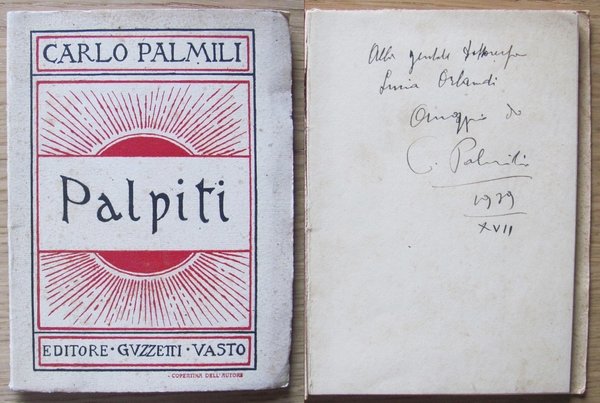 CARLO PALMILI
Palpiti
EDITORE · GVZZETTI · VASTO
- COPERTINA DELL'AUTORE
Alla gentile
Lucia Orlandi
Omaggio di
C. Palmili
1939
XVII